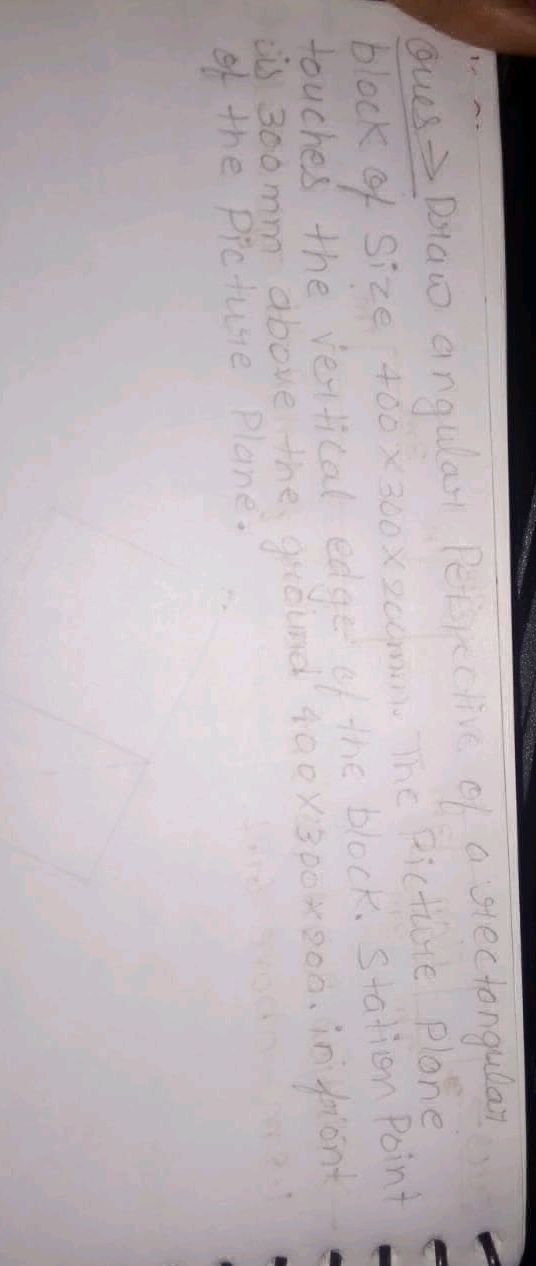 Ques → Draw angular Perspective of a rectangular
block of Size 400x300x200mm. The Picture plane
touches the vertical edge of the block. Station Point
is 300mm above the ground 400x300x200. in front
of the Picture Plane.